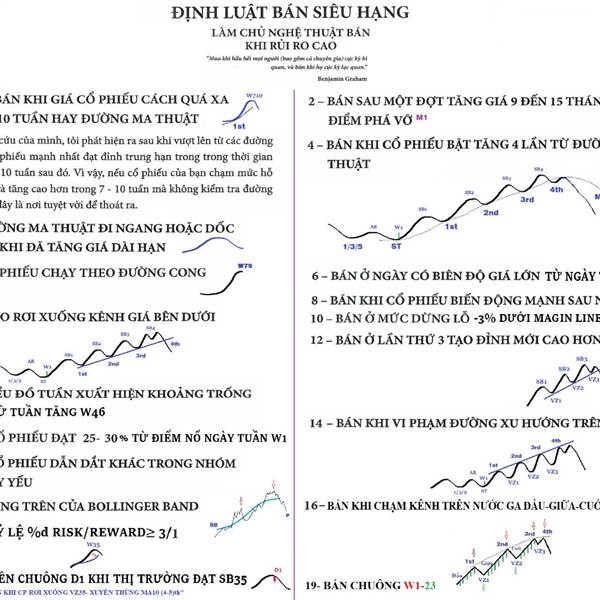 ĐỊNH LUẬT BÁN SIÊU HẠNG
LÀM CHỦ NGHỆ THUẬT BÁN
KHI RỦI RO CAO
"Mua khi hầu hết mọi người (bao gồm cả chuyên gia) cực kỳ bi
quan, và bán khi họ cực kỳ lạc quan."
Benjamin Graham
BÁN KHI GIÁ CỔ PHIẾU CÁCH QUÁ XA
10 TUẦN HAY ĐƯỜNG MA THUẬT
W710
1st
cứu của mình, tôi phát hiện ra sau khi vượt lên từ các đường
phiếu mạnh nhất đạt đỉnh trung hạn trong trong thời gian
10 tuần sau đó. Vì vậy, nếu cổ phiếu của bạn chạm mức hỗ
à tăng cao hơn trong 7 - 10 tuần mà không kiểm tra đường
đây là nơi tuyệt vời để thoát ra.
ỜNG MA THUẬT ĐI NGANG HOẶC DỐC
KHI ĐÃ TĂNG GIÁ DÀI HẠN
PHIẾU CHẠY THEO ĐƯỜNG CONG
W79
O RƠI XUỐNG KÊNH GIÁ BÊN DƯỚI
1/3/5 AR ST W1 1st SB1 2nd SB2 3rd SB3 SB4 4th
ỂU ĐỒ TUẦN XUẤT HIỆN KHOẢNG TRỐNG
Ừ TUẦN TĂNG W46
Ổ PHIẾU ĐẠT 25- 30% TỪ ĐIỂM NỔ NGÀY TUẦN W1
Ổ PHIẾU DẪN DẮT KHÁC TRONG NHÓM
Y YẾU
NG TRÊN CỦA BOLLINGER BAND
BB P
Ỷ LỆ %d RISK/REWARD≥ 3/1
W35
ÊN CHUÔNG D1 KHI THỊ TRƯỜNG ĐẠT SB35
D1
N KHI CP RƠI XUỐNG VZ35- XUYÊN THỦNG MA10 (4-5)th"
2 – BÁN SAU MỘT ĐỢT TĂNG GIÁ 9 ĐẾN 15 THÁN
ĐIỂM PHÁ VỠ M1
4 – BÁN KHI CỔ PHIẾU BẬT TĂNG 4 LẦN TỪ ĐƯỜ
THUẬT
1/3/5 AR ST W1 1st SB1 2nd SB2 3rd SB3 4th SB4 M
6 – BÁN Ở NGÀY CÓ BIÊN ĐỘ GIÁ LỚN TỪ NGÀY T
8 – BÁN KHI CỔ PHIẾU BIẾN ĐỘNG MẠNH SAU N
10 – BÁN Ở MỨC DỪNG LỖ -3% DƯỚI MAGIN LINE
12 – BÁN Ở LẦN THỨ 3 TẠO ĐỈNH MỚI CAO HƠN
SB1 SB2 SB3
VZ1 VZ2 VZ3
14 – BÁN KHI VI PHẠM ĐƯỜNG XU HƯỚNG TRÊN
1/3/5 AR ST W1 1st 2nd 3rd 4th
VZ1 VZ2 VZ3
16 – BÁN KHI CHẠM KÊNH TRÊN NƯỚC GA ĐẦU-GIỮA-CUỐ
Đầu Giữa
VZ1 VZ2 VZ3
19- BÁN CHUÔNG W1-23